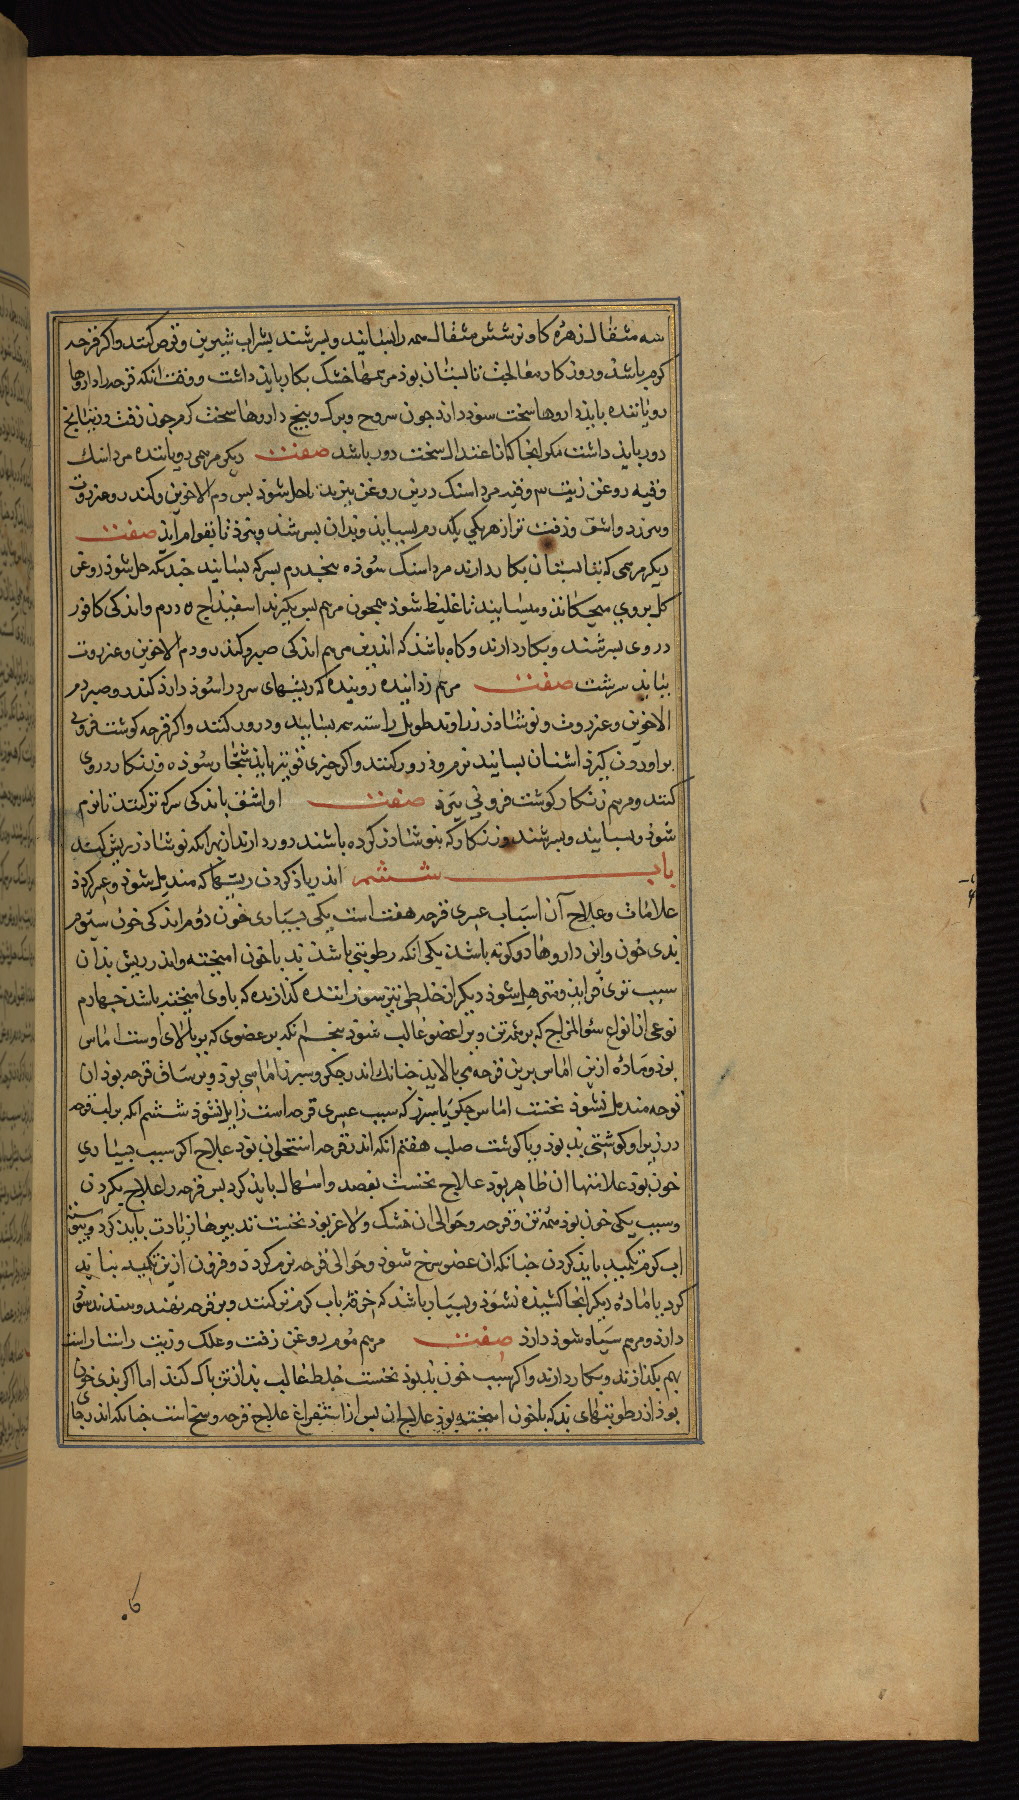 سه مثقال زهره کاو نر شش مثقال همه را بسایند و بسرشند بشراب شیرین و قرص کنند و اکر قرحه
کرم باشد و روزکار معالجت تابستان بوذ مرهمها خشک بکار باید داشت و وقت انکه قرحه را داروها
رویاننده باید داروها سخت سوددارذ جون سروج و برک و بیخ داروها سخت کرم جون زفت و
دور باید داشت مکر انجا کی از اعتدال سخت دور باشد صفت دیکر مرهمی رویاننده مرداسنک
وقیه روغن زیت ۳ وقیه مرداسنک درین روغن بپزند تا حل شوذ پس دم الاخوین و کندر و عنزروت
و اشق و زفت تر از هر یکی یکدرم بسایند و بدان بسرشند و بپزند تا بقوام آید صفت
دیکر مرهمی که بتابستان بکار دارند مرداسنک سوده پنجدرم بسرکه بسایند جندانکه حل شوذ روغن
کل بر وی میجکانند و میسایند تا غلیظ شوذ همجون مرهم پس بکیرند اسفیذاج ۵ درم و اندکی کافور
در وی بسرشند و بکار دارند و کاه باشد که اندرین مرهم اندکی صبر و کندر و دم الاخوین و عنزروت
بباید سرشت صفت مرهم زداینده روینده که ریشهای سر را سود دارد کندر و صبر دم
الاخوین و عنزروت و نوشاذر زراوند طویل راستا همه بسایند و ذرور کنند و اکر قرحه کوشت فزونی
براوردن کیرد اشنان بسایند نرم و ذرور کنند و اکر جیزی قویتر باید شنجار سوده و زنکار در وی
کنند و مرهم زنکار کوشت فزونی ببرد صفت او اشق باندکی سرکه تر کنند تا نرم
شوذ و بسایند و بسرشند و زنکار که بنوشاذر کرده باشند دور دارند از بهر انکه نوشاذر ریش کند
باب ششم اندر یاذ کردن ریشها که مندمل نشوذ و عسر کردذ
علامات و علاج آن اسباب عسری قرحه هفت است یکی بسیاری خون دوم اندکی خون سیوم
بدی خون و این داروها دو کونه باشد یکی انکه رطوبتی باشد بد با خون امیخته و اندر ریش بذان
سبب تری فزاید و مندمل نشوذ دیکر ان خلطی تیز سوزاننده کذازنده که با وی امیخته باشد جهارم
نوعی از انواع سؤ المزاج که بر همه تن و بر عضو غالب شود پنجم انکه بر عضوی که بر بالای اوست اماس
بوذ و ماده ازین اماس برین قرحه می پالاید جنانک اندر جکر و سبرز اماسی بوذ و بر ساق قرحه بوذ ان
قرحه مندمل نشوذ نخست اماس جکر یا سبرز که سبب عسری قرحه است زایل نشوذ ششم انکه بر لب قرحه
در زیر او کوشتی بد بوذ و یا کوشت صلب هفتم انکه اندر قرحه استخوان بوذ علاج اکر سبب بسیاری
خون بوذ علامتها ان ظاهر بوذ علاج نخست بفصد و اسهال باید کرد پس قرحه را علاج کردن
و سبب کمی خون بوذ همه تن و قرحه و حوالی ان خشک و لاغر بوذ نخست تدبیرها زیادت باید کرد و پیوسته
اب کرم تکمید باید کردن جنانکه ان عضو سرخ شوذ و حوالی قرحه نرم کردد و فزون ازین تکمید نباید
کرد یا ماده دیکر انجا کشیده نشوذ و بسیار باشد که خرقه باب کرم تر کنند و بر قرحه نهند و ببندند سوذ
دارد و مرهم سیاه سوذ دارد صفت مرهم موم روغن زفت و علک و زیت راستا راست
بهم بکذازند و بکار دارند و اکر سبب خون بد بوذ نخست خلط غالب بد از تن پاک کنند اما اکر بدی خون
بوذ از رطوبتهای بد که با خون امیخته بوذ علاج ان پس از استفراغ علاج قرحه وسخ است جنانکه اندر جای